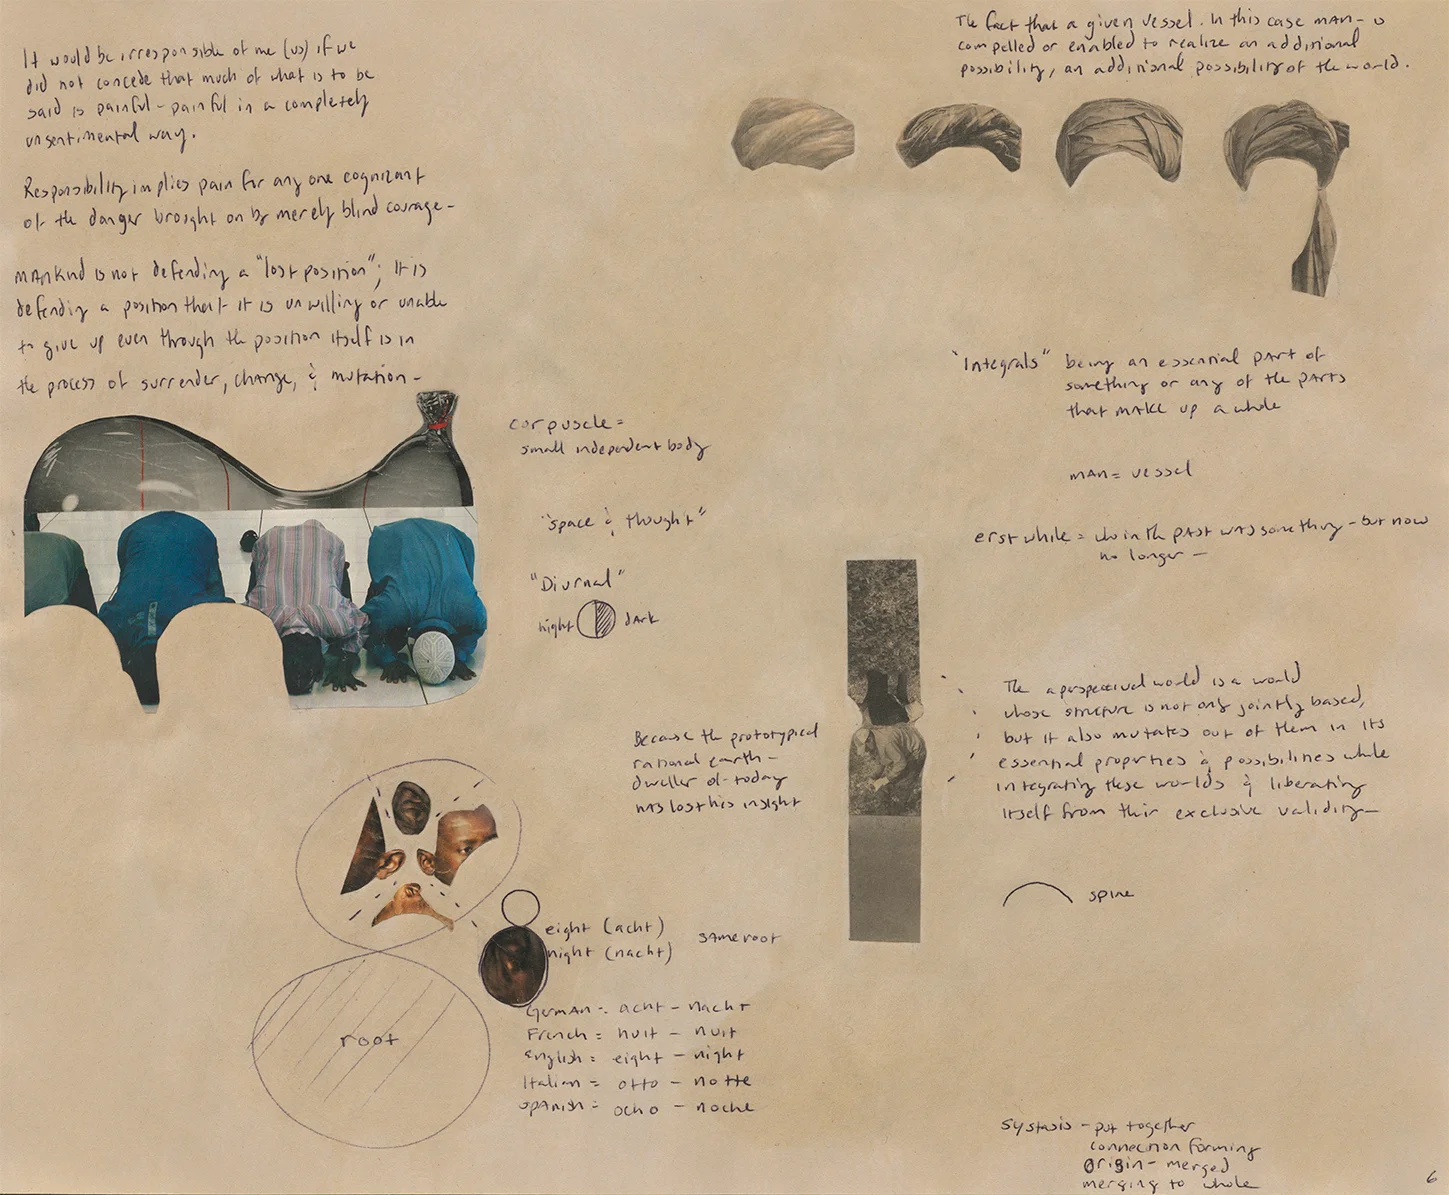 It would be irresponsible of me (us) if we
did not concede that much of what is to be
said is painful - painful in a completely
unsentimental way.
Responsibility implies pain for any one cognizant
of the danger brought on by merely blind courage -
MANKind is not defending a "lost position"; It is
defending a position that it is unwilling or unable
to give up even through the position itself is in
the process of surrender, change, & mutation -
The fact that a given vessel. In this case MAN - is
compelled or enabled to realize an additional
possibility, an additional possibility of the world.
corpuscle =
small independent body
"space & thought"
"Diurnal"
night
dark
"Integrals" being an essential part of
something or any of the parts
that make up a whole
MAN = vessel
erstwhile = who in the past was something - but now
no longer -
Because the prototypical
rational earth -
dweller of today
has lost his insight
The aperspectival world is a world
whose structure is not only jointly based,
but it also mutates out of them in its
essential properties & possibilities while
integrating these worlds & liberating
itself from their exclusive validity -
spine
eight (acht)
night (nacht)
same root
root
German = acht - nacht
French = huit - nuit
English = eight - night
Italian = otto - notte
Spanish = ocho - noche
systasis - put together
connection forming
origin - merged
merging to whole
6